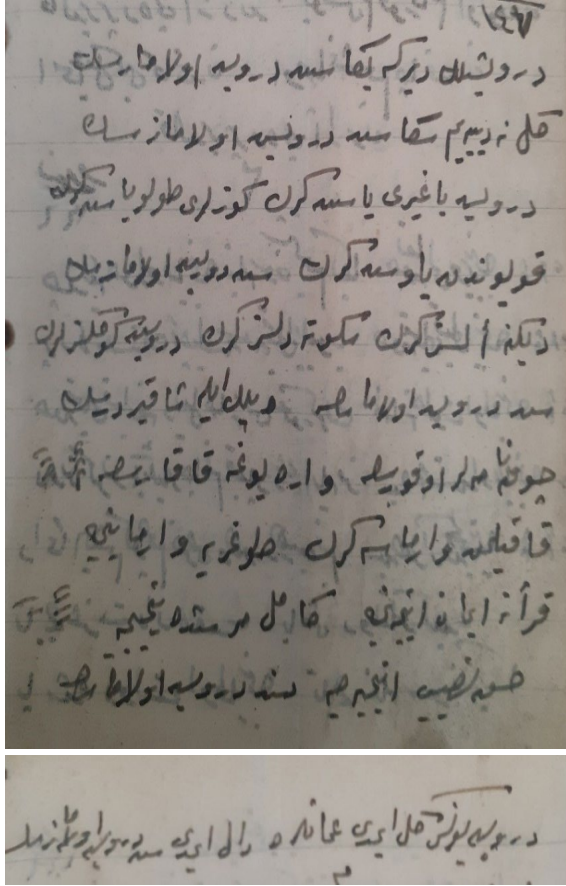 درویشلك دیركه بكا سن درویش اولامازسك
كل نه دییه‌یم سكا سن درویش اولامازسك
درویش باغری یاش كرك كوزلری طولو یاش كرك
قویوندن یاواش كرك سن درویش اولامازسك
دیكنه ألسز كرك سكونه دلسز كرك درویش كوكلسز كرك
سن درویش اولامازسك دیلك ایله شاقیرسك
چوق معنالر اوقورسك واره یوغه قاقارسك
قاقیلمق وارمایسه كرك طوغری یه وارماینجه
قرأنه كامل مرشده یتمینجه
حق نصیب ایتمینجه سن درویش اولامازسك
درویش یونس كل ایمدی عمانلره دال ایمدی سن درویش اولامازسك